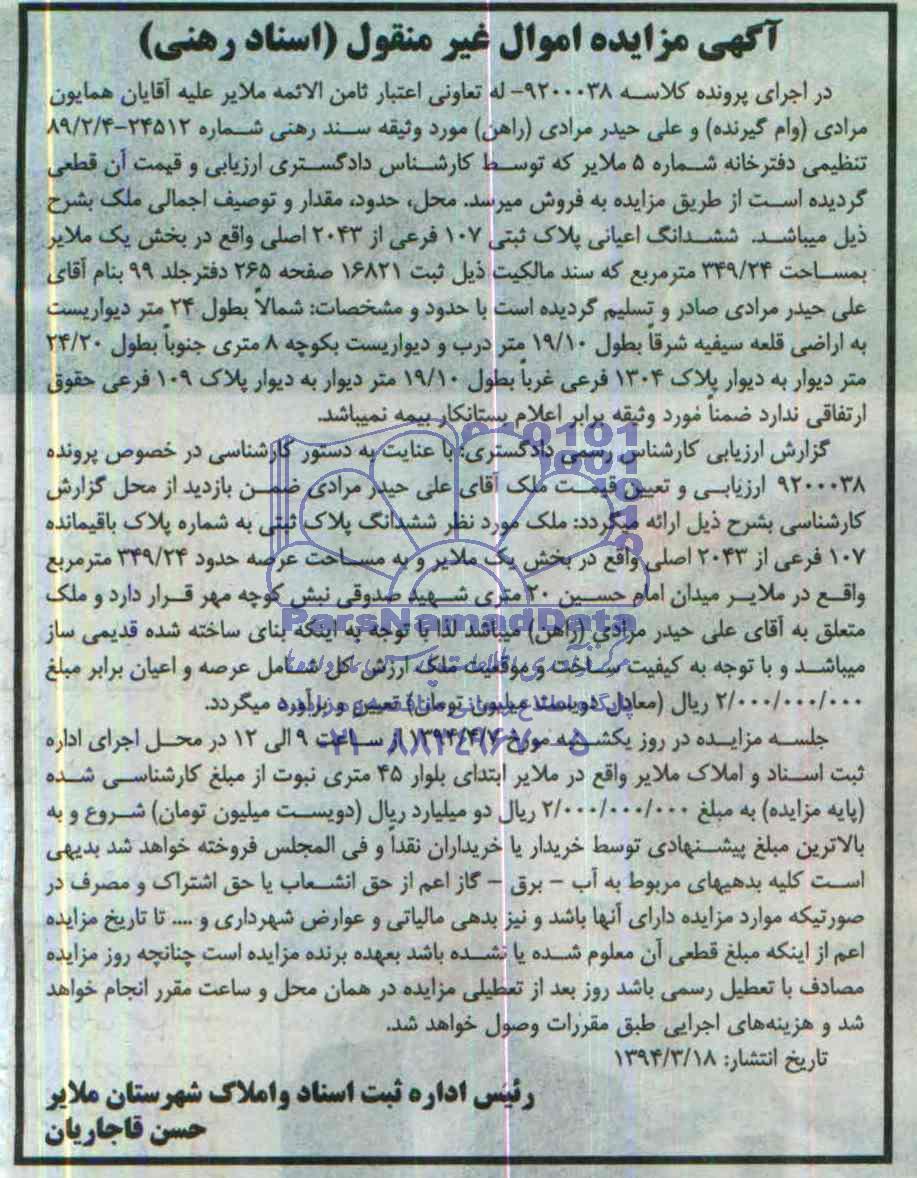 آگهی مزایده اموال غیر منقول (اسناد رهنی)
در اجرای پرونده کلاسه ۹۲۰۰۰۳۸- له تعاونی اعتبار ثامن الائمه ملایر علیه آقایان همایون
مرادی (وام گیرنده) و علی حیدر مرادی (راهن) مورد وثیقه سند رهنی شماره ۲۴۵۱۲-۸۹/۲/۴
تنظیمی دفترخانه شماره ۵ ملایر که توسط کارشناس دادگستری ارزیابی و قیمت آن قطعی
گردیده است از طریق مزایده به فروش میرسد. محل، حدود، مقدار و توصیف اجمالی ملک بشرح
ذیل میباشد. ششدانگ اعیانی پلاک ثبتی ۱۰۷ فرعی از ۲۰۴۳ اصلی واقع در بخش یک ملایر
بمساحت ۳۴۹/۲۴ مترمربع که سند مالکیت ذیل ثبت ۱۶۸۲۱ صفحه ۲۶۵ دفترجلد ۹۹ بنام آقای
علی حیدر مرادی صادر و تسلیم گردیده است با حدود و مشخصات: شمالاً بطول ۲۴ متر دیواریست
به اراضی قلعه سیفیه شرقاً بطول ۱۹/۱۰ متر درب و دیواریست بکوچه ۸ متری جنوباً بطول ۲۴/۲۰
متر دیوار به دیوار پلاک ۱۳۰۴ فرعی غرباً بطول ۱۹/۱۰ متر دیوار به دیوار پلاک ۱۰۹ فرعی حقوق
ارتفاقی ندارد ضمناً مورد وثیقه برابر اعلام بستانکار بیمه نمیباشد.
گزارش ارزیابی کارشناس رسمی دادگستری: با عنایت به دستور کارشناسی در خصوص پرونده
۹۲۰۰۰۳۸ ارزیابی و تعیین قیمت ملک آقای علی حیدر مرادی ضمن بازدید از محل گزارش
کارشناسی بشرح ذیل ارائه میگردد: ملک مورد نظر ششدانگ پلاک ثبتی به شماره پلاک باقیمانده
۱۰۷ فرعی از ۲۰۴۳ اصلی واقع در بخش یک ملایر و به مساحت عرصه حدود ۳۴۹/۲۴ مترمربع
واقع در ملایر میدان امام حسین ۲۰ متری شهید صدوقی نبش کوچه مهر قرار دارد و ملک
ParsNamadData
متعلق به آقای علی حیدر مرادی (راهن) میباشد لذا با توجه به اینکه بنای ساخته شده قدیمی ساز
میباشد و با توجه به کیفیت ساخت و موقعیت ملک ارزش کل شامل عرصه و اعیان برابر مبلغ
۲/۰۰۰/۰۰۰/۰۰۰ ریال (معادل دویست میلیون تومان) تعیین و برآورد میگردد.
جلسه مزایده در روز یکشنبه مورخ ۱۳۹۴/۴/۷ از ساعت ۹ الی ۱۲ در محل اجرای اداره
۰۲۱-۸۸۳۴۹۶۷۰-۵
ثبت اسناد و املاک ملایر واقع در ملایر ابتدای بلوار ۴۵ متری نبوت از مبلغ کارشناسی شده
(پایه مزایده) به مبلغ ۲/۰۰۰/۰۰۰/۰۰۰ ریال دو میلیارد ریال (دویست میلیون تومان) شروع و به
بالاترین مبلغ پیشنهادی توسط خریدار یا خریداران نقداً و فی المجلس فروخته خواهد شد بدیهی
است کلیه بدهیهای مربوط به آب – برق – گاز اعم از حق انشعاب یا حق اشتراک و مصرف در
صورتیکه موارد مزایده دارای آنها باشد و نیز بدهی مالیاتی و عوارض شهرداری و .... تا تاریخ مزایده
اعم از اینکه مبلغ قطعی آن معلوم شده یا نشده باشد بعهده برنده مزایده است چنانچه روز مزایده
مصادف با تعطیل رسمی باشد روز بعد از تعطیلی مزایده در همان محل و ساعت مقرر انجام خواهد
شد و هزینه‌های اجرایی طبق مقررات وصول خواهد شد.
تاریخ انتشار: ۱۳۹۴/۳/۱۸
رئیس اداره ثبت اسناد واملاک شهرستان ملایر
حسن قاجاریان